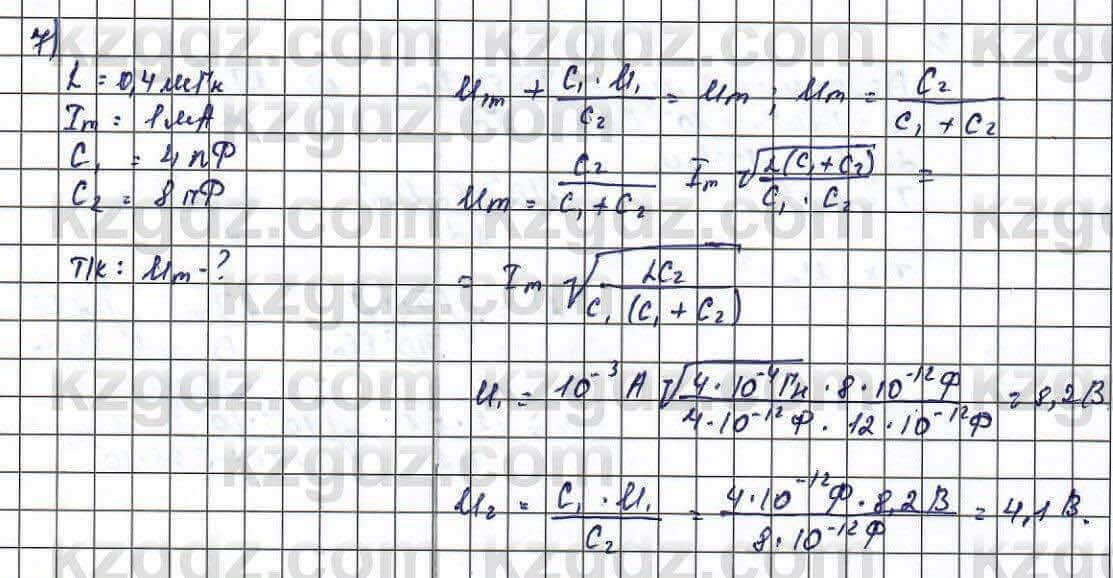 7)
L = 0,4 мГн
I_m = 1 мА
C₁ = 4 пФ
C₂ = 8 пФ
Т/к: U_m - ?
U_m + (C₁ · U₁)/C₂ = U_m ; U_m = C₂/(C₁ + C₂)
U_m = C₂/(C₁ + C₂) I_m √(L(C₁ + C₂))/(C₁ · C₂) =
= I_m √(LC₂/(C₁(C₁ + C₂)))
U₁ = 10⁻³ А √(4 · 10⁻⁴ Гн · 8 · 10⁻¹² Ф)/(4 · 10⁻¹² Ф · 12 · 10⁻¹² Ф) = 8,2 В
U₂ = (C₁ · U₁)/C₂ = (4 · 10⁻¹² Ф · 8,2 В)/(8 · 10⁻¹² Ф) = 4,1 В.
kzgdz.com